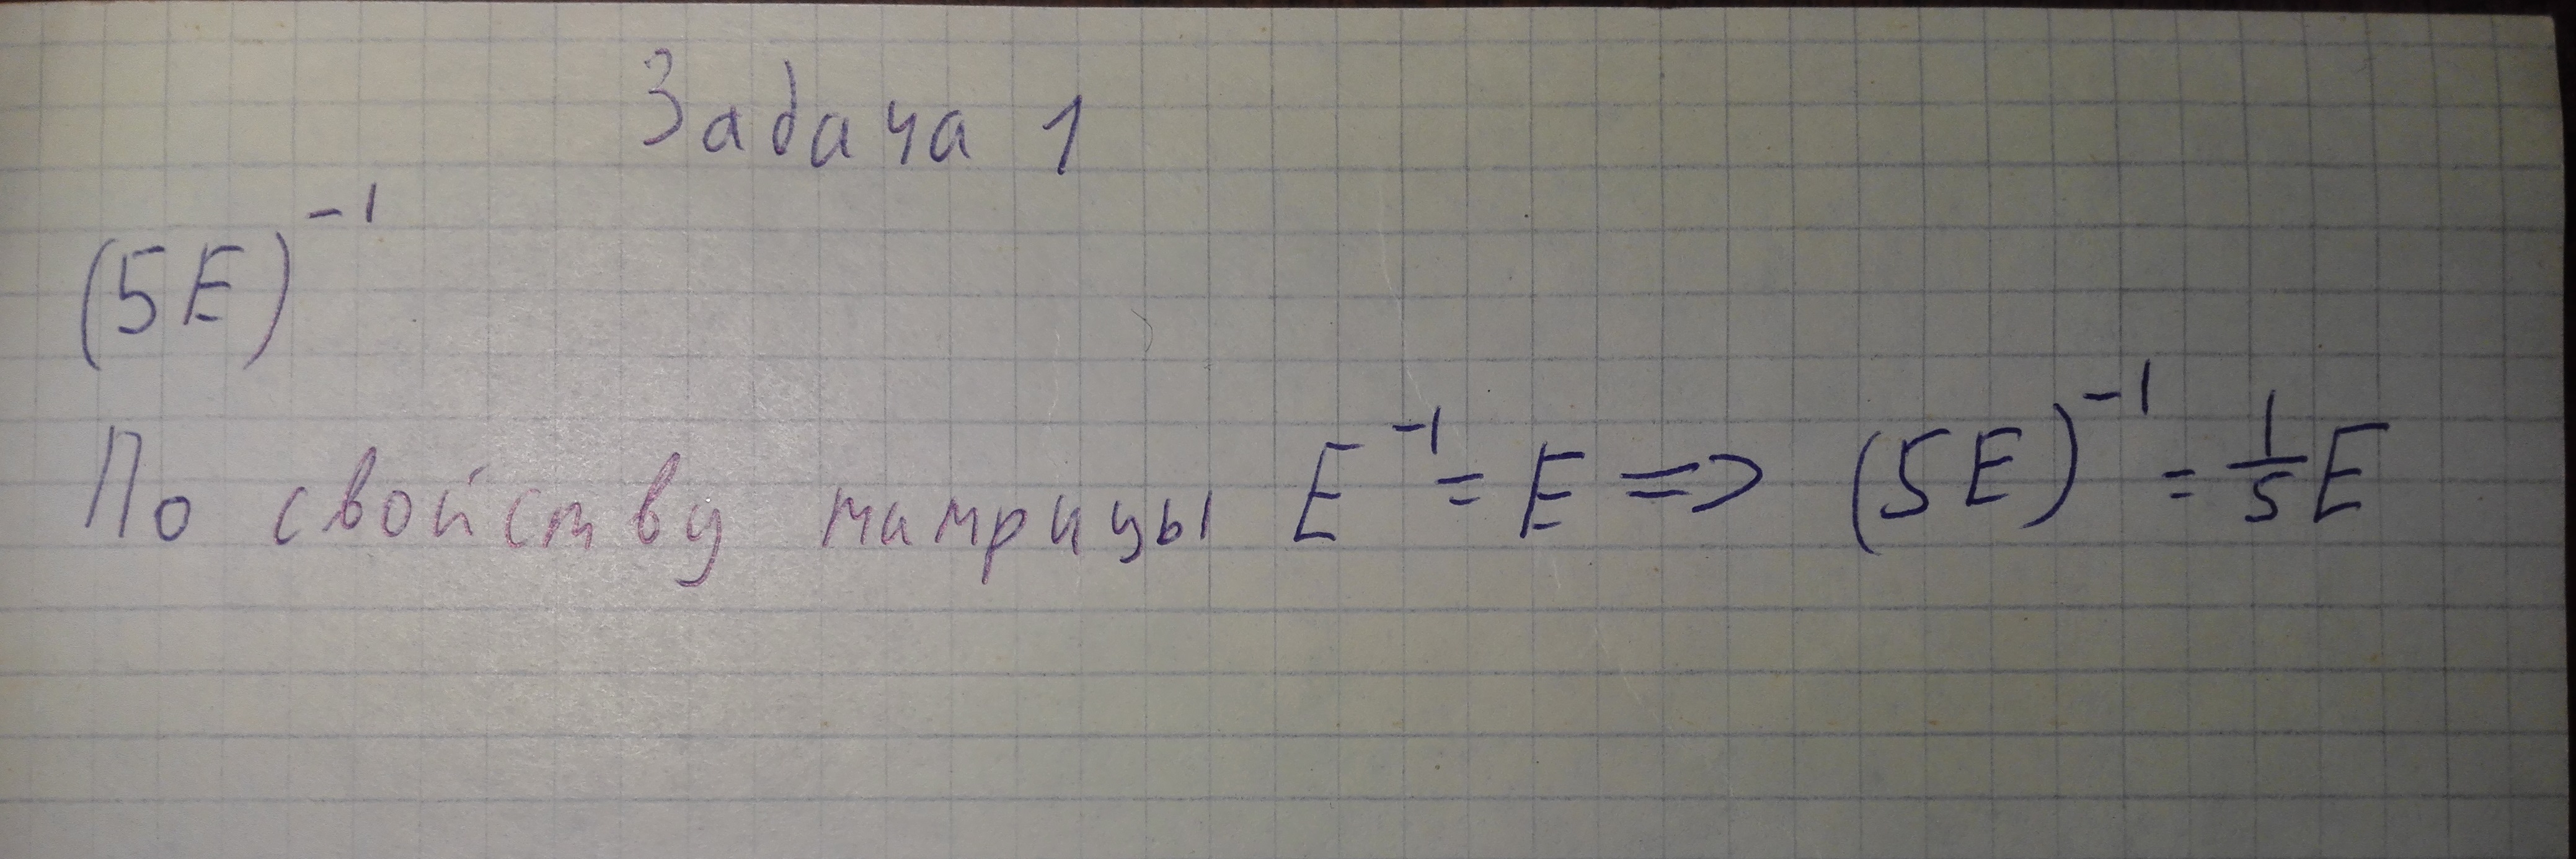 Задача 1
(5E)⁻¹
По свойству матрицы E⁻¹ = E => (5E)⁻¹ = 1/5 E